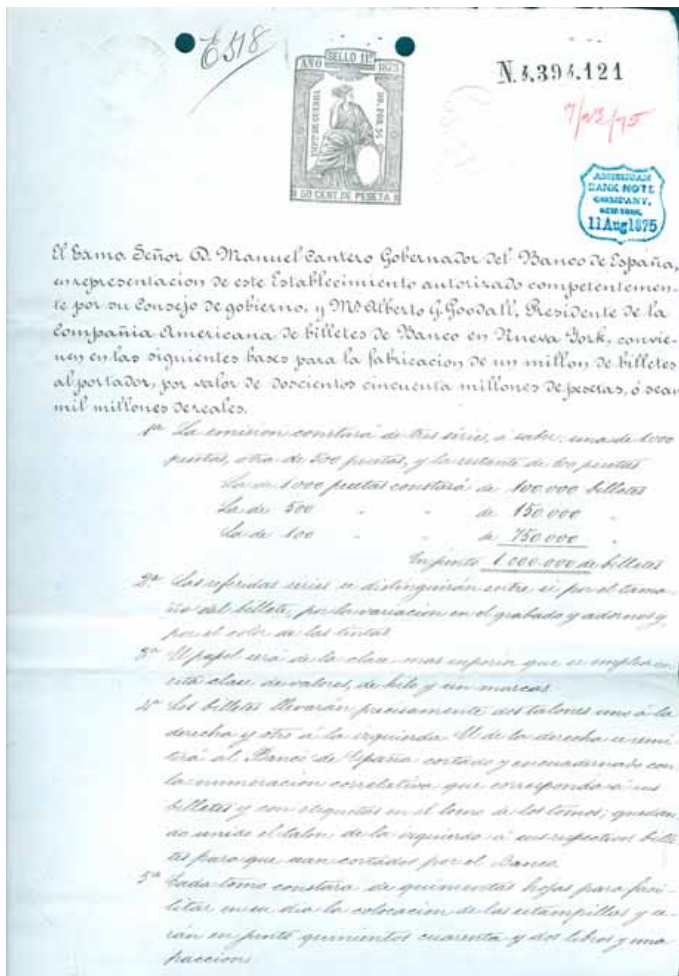 E518
SELLO 11º
AÑO 1875
IMPTO DE GUERRA
50 CENT. DE PESETA
N.4.394.121
AMERICAN
BANK NOTE
COMPANY,
NEW YORK,
11 Aug 1875
El Exmo. Señor D. Manuel Cantero Gobernador del Banco de España,
en representacion de este Establecimiento autorizado competentemen-
te por su Consejo de gobierno, y Mr Alberto G. Goodall, Presidente de la
Compañia Americana de billetes de Banco en Nueva York, convie-
nen en las siguientes bases para la fabricacion de un millon de billetes
al portador, por valor de doscientos cincuenta millones de pesetas, ó sean
mil millones de reales.
1ª La emision constará de tres séries, á saber: una de 1000
pesetas, otra de 500 pesetas, y la restante de 100 pesetas
La de 1000 pesetas constará de 100.000 billetes
La de 500 " " de 150.000 "
La de 100 " " de 750.000 "
En junto 1.000.000 de billetes
2ª Las referidas séries se distinguirán entre sí por el tama-
ño del billete, por la variacion en el grabado y adornos y
por el color de las tintas
3ª El papel será de la clase mas superior que se emplea en
esta clase de valores, de hilo y sin marcas
4ª Los billetes llevarán precisamente dos talones uno á la
derecha y otro á la izquierda. El de la derecha se remi-
tirá al Banco de España cortado y encuadernado con
la numeracion correlativa que corresponda á sus
billetes y con etiquetas en el lomo de los tomos; quedan-
do unido el talon de la izquierda á sus respectivos bille-
tes para que sean cortados por el Banco.
5ª Cada tomo constará de quinientas hojas para faci-
litar en su dia la colocacion de las estampillas y se-
rán en junto quinientos cuarenta y dos libros y una
fraccion.